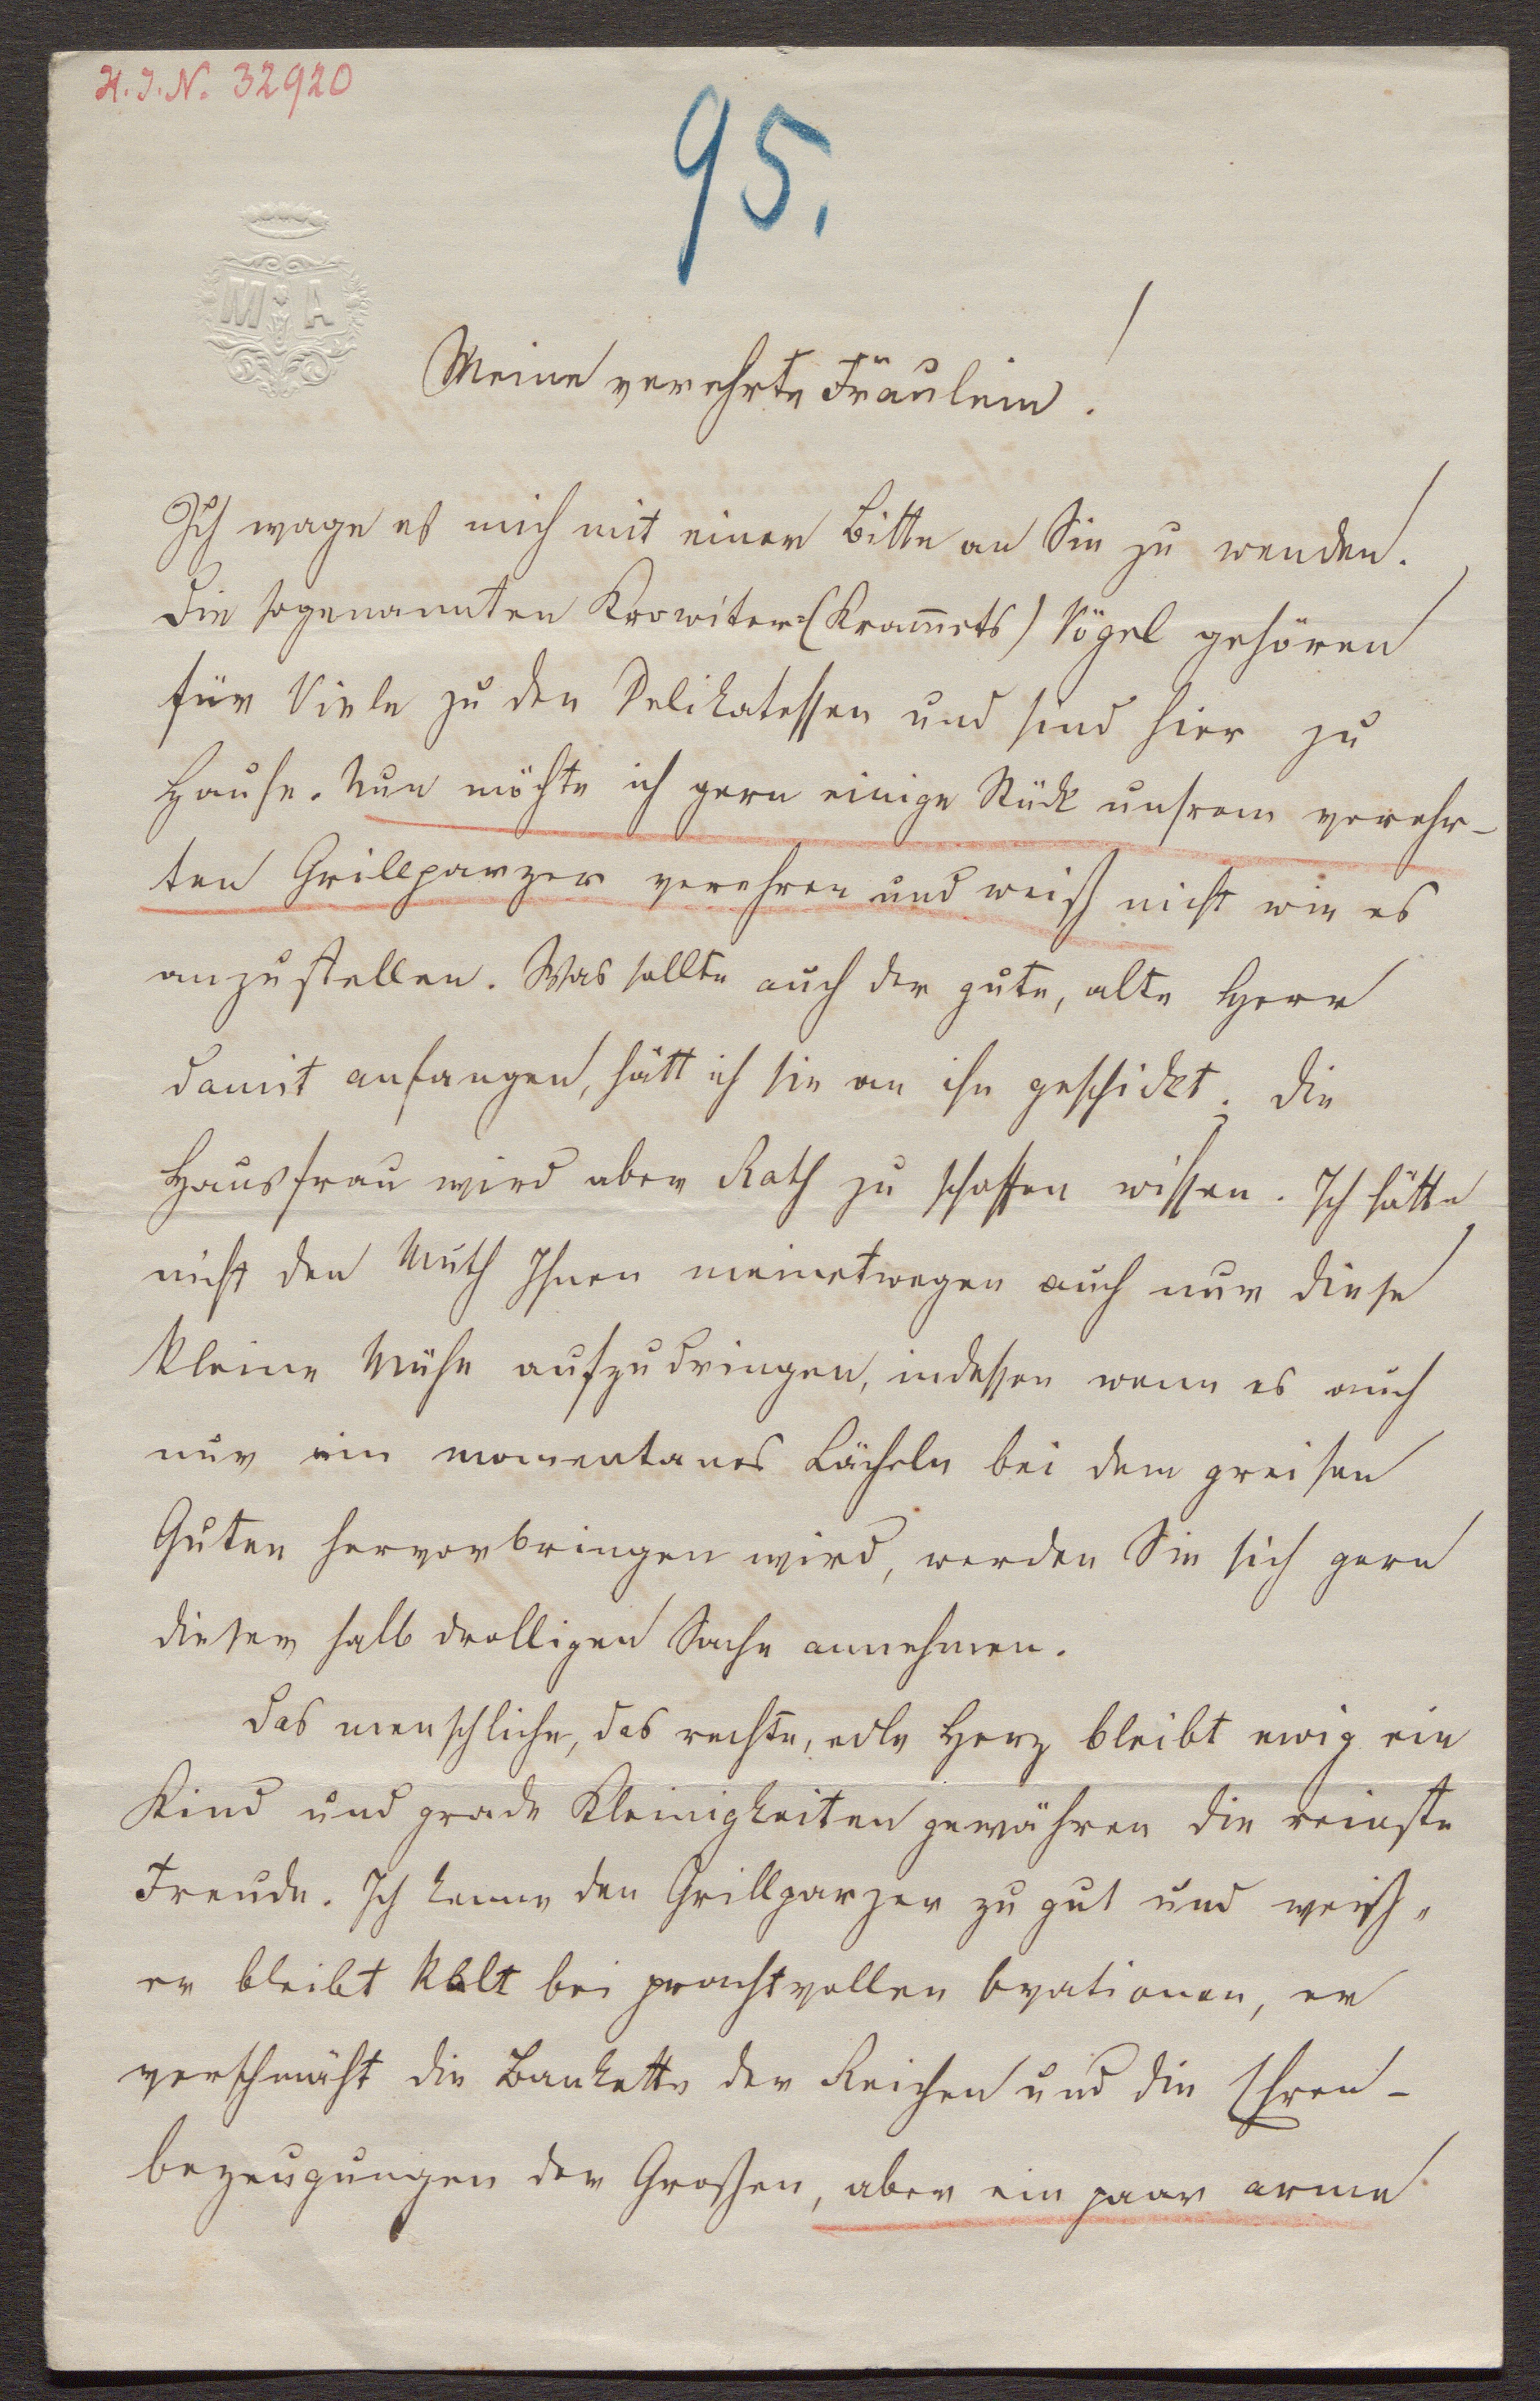 H.I.N. 32920
95.
M A
Meine verehrte Fräulein!
Ich wage es mich mit einer Bitte an Sie zu wenden.
Die sogenannten Krowiter=(Kram̅ets) Vögel gehören
für Viele zu den Delikatessen und sind hier zu
Hause. Nun möchte ich gern einige Stück unsrem verehr-
ten Grillparzer verehren und weiß nicht wie es
anzustellen. Was sollte auch der gute, alte Herr
damit anfangen, hätt ich sie an ihn geschickt; die
Hausfrau wird aber Rath zu schaffen wissen. Ich hätte
nicht den Muth Ihnen meinetwegen auch nur diese
kleine Mühe aufzudringen, indessen wenn es auch
nur ein momentanes Lächeln bei dem greisen
Guten hervorbringen wird, werden Sie sich gern
dieser halb drolligen Sache annehmen.
Das menschliche, das rechte, edle Herz bleibt ewig ein
Kind und grade Kleinigkeiten gewähren die reinste
Freude. Ich kenne den Grillparzer zu gut und weiß,
er bleibt kalt bei prachtvollen Ovationen, er
verschmäht die Bankette der Reichen und die Ehren-
bezeugungen der Großen, aber ein paar arme